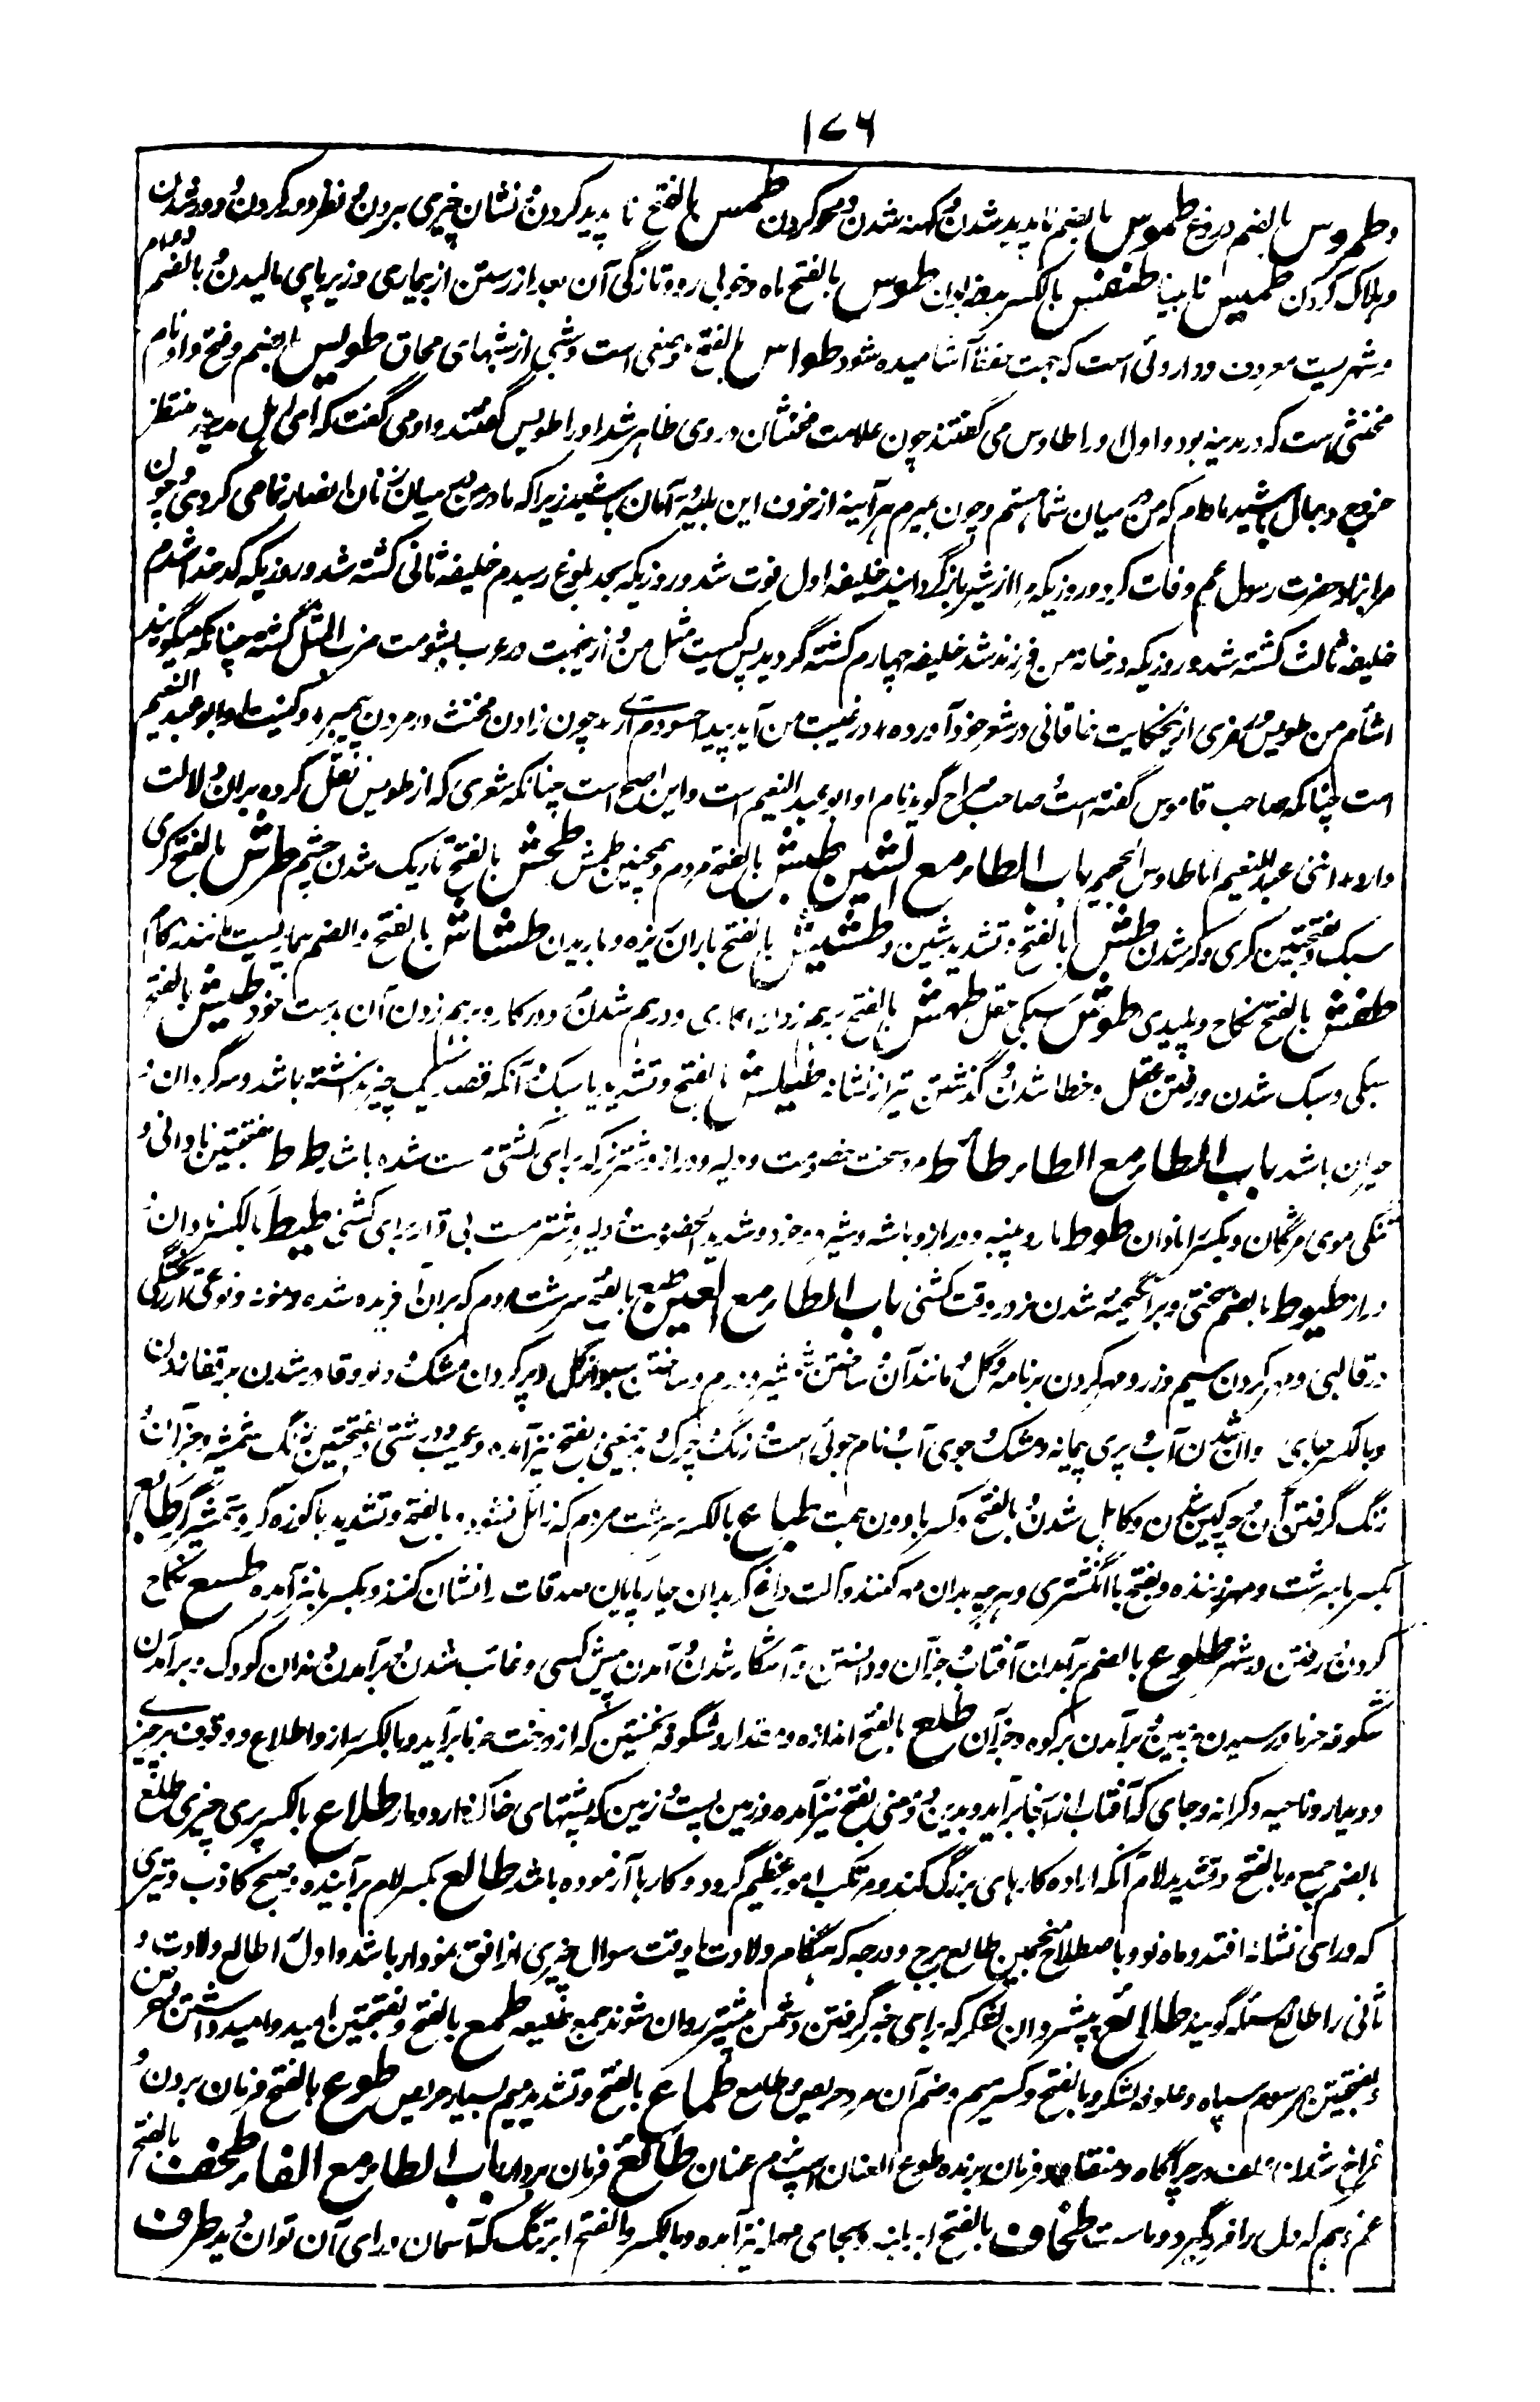 ۱۷۶
و طمروس بالضم دروغ طموس بالضم ناپدید شدن و کهنه شدن و محو کردن طمس بالفتح ناپدید کردن و نشان چیزی بردن و نظر دور کردن و دور شدن
و هلاک کردن طمیس نابینا طنفس بالکسر طوس بالفتح ماه و خوبی رو و تازگی آن بعد از رستن از بیماری و زیر پای مالیدن و بالضم دوام
و شهریست معروف و داروئی است که جهت حفظ آشامیده شود طواس بالفتح و شبی از شبهای محاق طویس بالضم و فتح واو نام
مخنثی است که در مدینه بود و اول او را طاوس می گفتند چون علامت مخنثان در وی ظاهر شد او را طویس گفتند و او می گفت که ای اهل مدینه منتظر
خروج دجال باشید مادام که من در میان شما هستم و چون بمیرم هر آیینه از خوف این بلیه آمان باشید زیرا که مادر من در میان زنان انصار نمامی کردی و چون
مرا بزاد حضرت رسول عم وفات کرد و روزیکه مرا از شیر باز گردانید خلیفه اول فوت شد و روزیکه بحد بلوغ رسیدم خلیفه ثانی کشته شد و روزیکه کدخدا شدم
خلیفه ثالث کشته شد و روزیکه در خانه من فرزند شد خلیفه چهارم کشته گردید پس کیست مثل من و ازینجهت در عرب بشومت ضرب المثل گشته چنانکه میگویند
اشأم من طویس و مخبری ازینحکایت خاقانی در شعر خود آورده در غیبت من آید پیدا حسودم آری چون زادن مخنث در مردن پیمبر و کنیت او ابو عبد النعیم
است چنانکه صاحب قاموس گفته است و صاحب صراح گوید نام او ابو عبد النعیم است و این اصح است چنانکه شعری که از طویس نقل کرده بران دلالت
دارد اننی عبد النعیم انا طاوس الجحیم باب الطاء مع الشین طبش بالفتح مردم و همچنین طمش طخش بالفتح تاریک شدن چشم طرش بالفتح کری
سبک و بفتحتین کری و کر شدن طش بالفتح و تشدید شین و طشیش بالفتح باران ریزه و باریدن طشاش بالفتح و الضم بیماریست مانند زکام
طفش بالفتح نکاح و پلیدی طوش سبکی عقل طهش بالفتح بر هم زدن کاری و در هم شدن در کار و بر هم زدن آن بدست خود طیش بالفتح
سبکی و سبک شدن و رفتن عقل و خطا شدن و گذشتن تیر از نشانه طیاش بالفتح و تشدید یا سبک و آنکه قصد یک چیز نداشته باشد و سرگردان و
حیران باشد باب الطاء مع الطاء طأط مرد سخت خصومت و دلیر و دراز و شتر نر که برای گشنی مست شده باشد طط بفتحتین نادانی و
تنگی موی مژگان و بکسر نادان طوط مار و پنبه و دراز و باشه و شدید الخصومت و دلیر و شتر مست بی قرار برای گشنی طیط بالکسر نادان و
دراز طیوط بالضم سختی و برانگیخته شدن نر در وقت گشنی باب الطاء مع العین طبع بالفتح سرشت مردم که بران آفریده شده و نمونه و نوعی
در قالبی و مهر کردن سیم و زر و مهر کردن بر نامه و گل و مانند آن و ساختن شمشیر و درم و ساختن سبو از گل و پر کردن مشک و دلو و قادر شدن بر قفا زدن
و بالکسر جای روان شدن آب و پری پیمانه و مشک و جوی آب و نام جوئی است و زنگ و چرک و بدینمعنی بفتح نیز آمده و عیب و درشتی و بفتحتین زنگ شمشیر و جز آن و
زنگ گرفتن آن و چرکین شدن و کاهل شدن و بالفتح و کسر با دون همت طباع بالکسر سرشت مردم که زائل نشود و بالفتح و تشدید با کوزه گر و شمشیرگر طابع
بکسر با سرشت و مهر زننده و بفتح با انگشتری و هر چه بدان مهر کنند و آلت داغ که بدان چارپایان صدقات را نشان کنند و بکسر با نیز آمده طسع نکاح
کردن و رفتن در شهر طلوع بالضم برآمدن آفتاب و جز آن و دانستن و آشکار شدن و آمدن پیش کسی و غائب شدن و برآمدن دندان کودک و برآمدن
شگوفه خرما و رسیدن بزمین و برآمدن بر کوه و جز آن طلع بالفتح اندازه و مقدار و شگوفه نخستین که از درخت خرما برآید و بالکسر راز و اطلاع و وقوف بر چیزی
و دیدار و ناحیه و کرانه و جای که آفتاب از آنجا برآید و بدین دو معنی بفتح نیز آمده و زمین پست و زمین که پشتهای خاک دارد و مار طلاع بالکسر پری چیزی طلع
بالضم جمع و بالفتح و تشدید لام آنکه اراده کارهای بزرگ کند و مرتکب امور عظیم گردد و کارها آزموده باشد طالع بکسر لام برآینده و صبح کاذب و تیری
که ورای نشانه افتد و ماه نو و باصطلاح منجمین طالع برج و درجه که هنگام ولادت یا وقت سوال چیزی از افق نمودار باشد و اول را طالع ولادت و
ثانی را طالع مسئله گویند طلائع پیشروان لشکر که برای خبر گرفتن دشمن پیشتر روان شوند جمع طلیعه طمع بالفتح و بفتحتین امید و امید داشتن و حرص
و بفتحتین مرسوم سپاه و علوفه لشکر و بالفتح و کسر میم و ضم آن مرد حریص و طامع طماع بالفتح و تشدید میم بسیار حریص طوع بالفتح فرمان بردن و
فراخ شدن علف در چراگاه و منقاد و فرمان برنده و طوع العنان اسپ نرم عنان طائع فرمان بردار باب الطاء مع الفاء طخف بالفتح
غم و هم که دل را فروگیرد و ماست طخاف بالفتح ابر و بجای مهمله نیز آمده و بالکسر و بالفتح ابر تنگ که آسمان ورای آن توان دید طرف